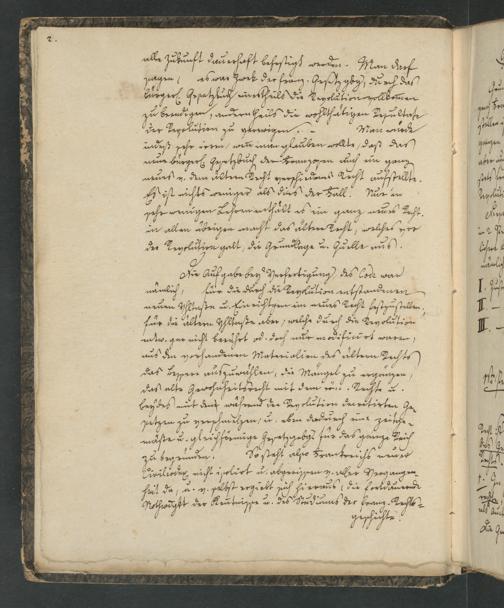 2.
alle Zukunft dauerhaft befestigt werden. Man darf
sagen, es war Zweck der franz. Gesetzgebg, durch das
bürgerl. Gesetzbuch einestheils die Revolution vollkommen
zu beendigen, anderntheils die wohlthätigen Resultate
der Revolution zu verewigen. – Man würde
indeß sehr irren, wenn man glauben wollte, daß das
neue bürgerl. Gesetzbuch der Franzosen auch ein ganz
neues v. dem ältern Recht verschiedenes Recht aufstellte.
Es ist nichts weniger als dies der Fall. Nur in
sehr wenigen Lehren enthält es ein ganz neues Recht.
in allen übrigen macht das ältere Recht, welches vor
der Revolution galt, die Grundlage u. Quelle aus.
Die Aufgabe bey Verfertigung des Code war
nämlich, für die durch die Revolution entstandenen
neuen Institute u. Einrichtgen ein neues Recht festzustellen,
für die ältern Institute aber, welche durch die Revolution
entw. gar nicht berührt od. doch nur modificirt waren,
aus den vorhandenen Materialien des ältern Rechts
das Bessere auszuwählen, die Mängel zu ergänzen,
das alte Gewohnheitsrecht mit dem röm. Rechte u.
beydes mit den während der Revolution decretirten Ge-
setzen zu verschmelzen, u. eben dadurch eine zeitge-
mäße u. gleichförmige Gesetzgebg für das ganze Reich
zu begründen. So steht also Frankreichs neuer
Civilcodex nicht isolirt u. abgerissen v. aller Vergangen-
heit da, u. v. selbst ergiebt sich hieraus, die fortdauernde
Nothwdgkt der Kenntnisse u. des Studiums der franz. Rechts-
geschichte.
I.
II.
III.